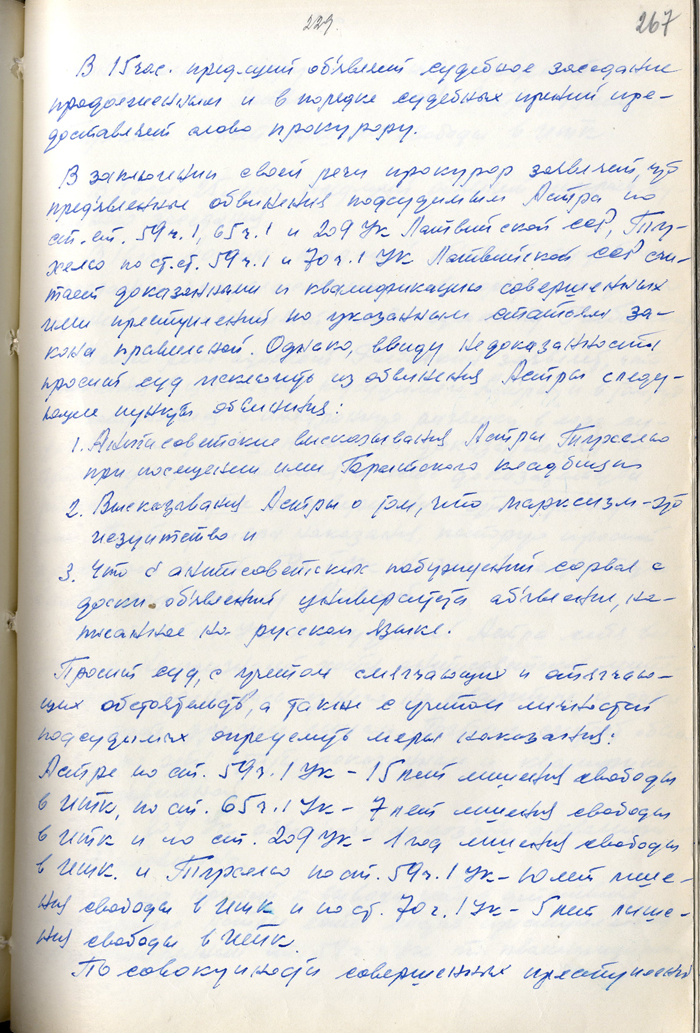 229.
267
В 15 час. пред-щий объявляет судебное заседание
продолженным и в порядке судебных прений пре-
доставляет слово прокурору.
В заключении своей речи прокурор заявляет, что
предъявленные обвинения подсудимым Астра по
ст.ст. 59 ч.1, 65 ч.1 и 209 УК Латвийской ССР,
по ст.ст. 59 ч.1 и 70 ч.1 УК Латвийской ССР счи-
тает доказанными и квалификацию совершенных
ими преступлений по указанным статьям за-
кона правильной. Однако, ввиду недоказанности
просит суд исключить из обвинения Астры следу-
ющие пункты обвинения:
1. Антисоветские высказывания Астры,
при посещении ими Гарнизонного кладбища
2. Высказывания Астры о том, что марксизм-это
иезуитство и
3. Что с антисоветских побуждений сорвал с
доски объявлений университета объявление, на-
писанное на русском языке.
Просит суд, с учетом смягчающих и отягчаю-
щих обстоятельств, а также с учетом личностей
подсудимых определить меры наказания:
Астре по ст. 59 ч.1 УК – 15 лет лишения свободы
в ИТК, по ст. 65 ч.1 УК – 7 лет лишения свободы
в ИТК и по ст. 209 УК – 1 год лишения свободы
в ИТК. и по ст. 59 ч.1 УК – 10 лет лише-
ния свободы в ИТК и по ст. 70 ч.1 УК – 5 лет лише-
ния свободы в ИТК.
По совокупности совершенных преступлений